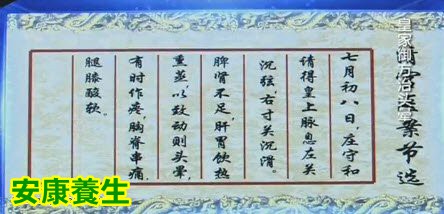 清宫医案节选
皇家御方治头晕
七月初八日，庄守和
请得皇上脉息左关
沉弦，右寸关沉滑。
脾肾不足，肝胃饮热
熏蒸，以致动则头晕，
有时作疼，胸脊串痛，
腿膝酸软。
安康養生